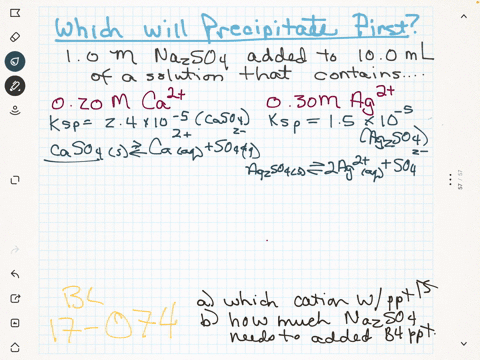 Which will Precipitate First?
1.0 M Na2SO4 added to 10.0 mL
of a solution that contains....
0.20 M Ca2+
Ksp = 2.4 x 10-5 (CaSO4)
CaSO4 (s) ⇌ Ca2+(aq) + SO42-(aq)
0.30M Ag2+
Ksp = 1.5 x 10-5
(Ag2SO4)
Ag2SO4(s) ⇌ 2Ag2+(aq) + SO42-
57 / 57
BL
17-074
a) which cation w/ ppt 1st
b) how much Na2SO4
needs to added B4 ppt.